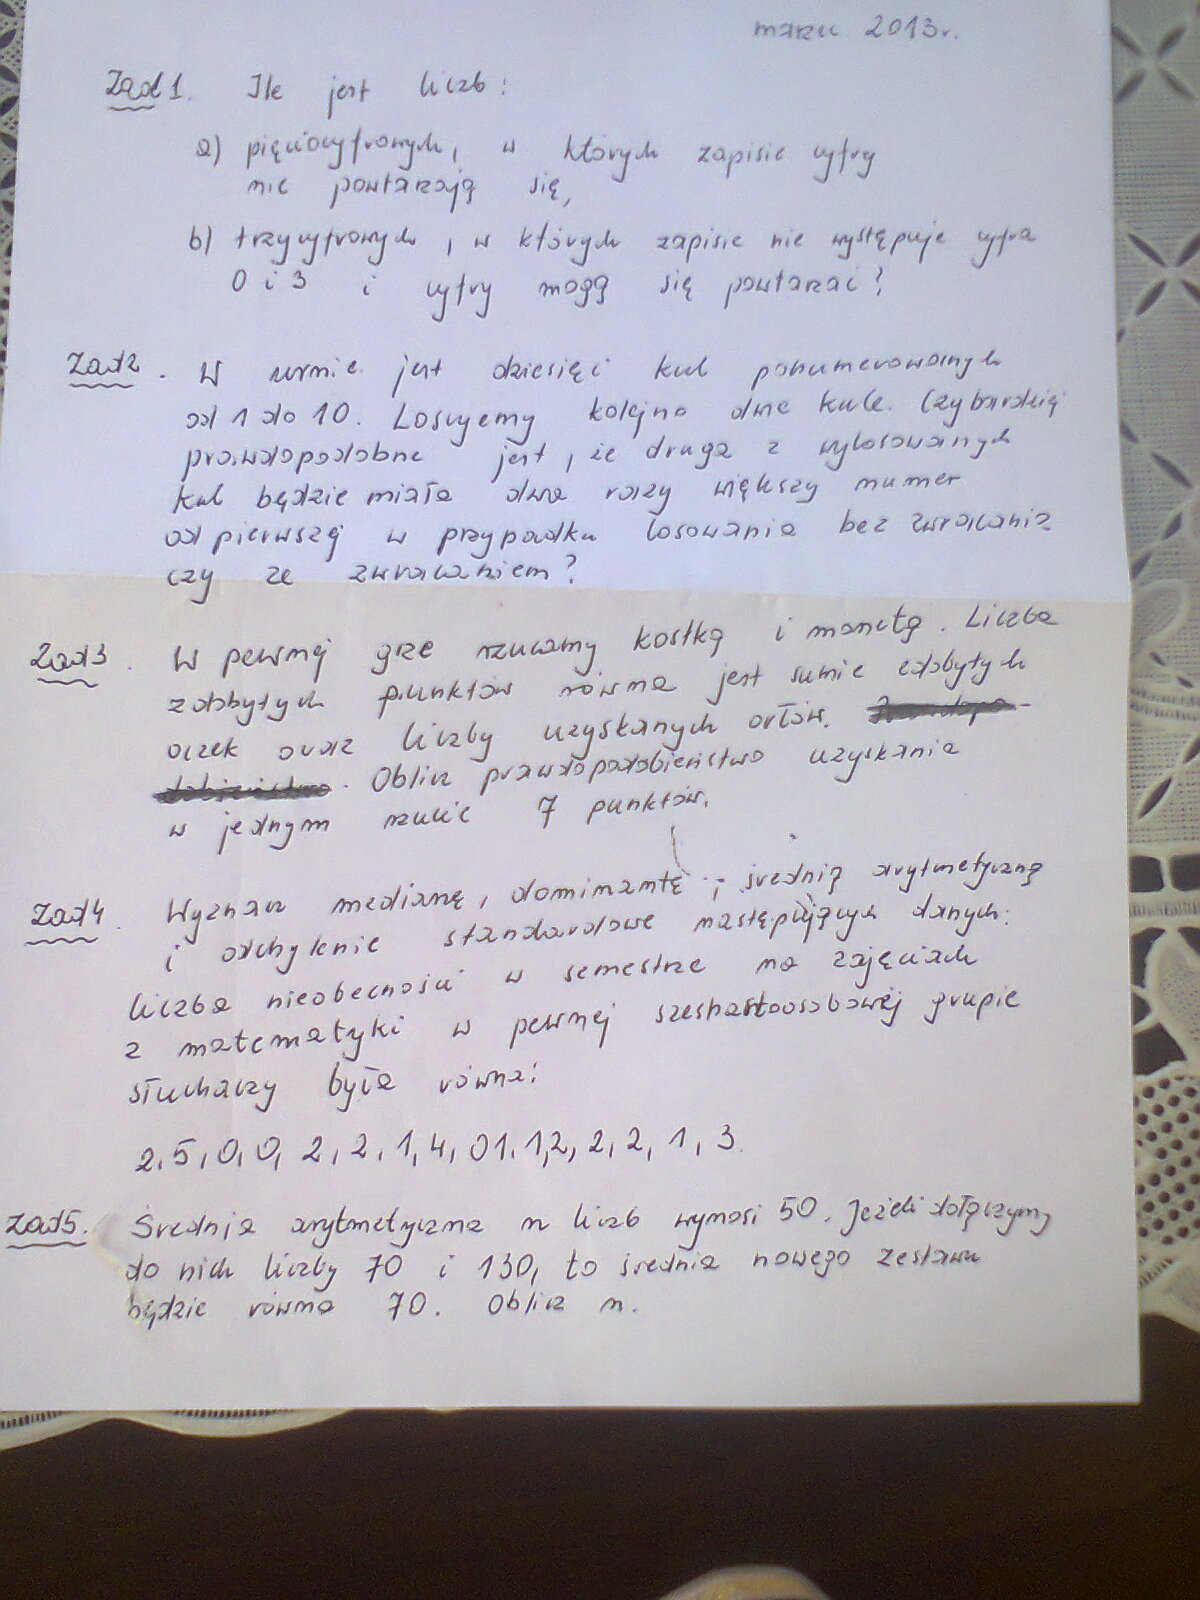 marzec 2013r.
Zad1. Ile jest liczb:
a) pięciocyfrowych, w których zapisie cyfry
nie powtarzają się,
b) trzycyfrowych, w których zapisie nie występuje cyfra
0 i 3 i cyfry mogą się powtarzać?
Zad2. W urnie jest dziesięć kul ponumerowanych
od 1 do 10. Losujemy kolejno dwie kule. Czy bardziej
prawdopodobne jest, że druga z wylosowanych
kul będzie miała dwa razy większy numer
od pierwszej w przypadku losowania bez zwracania
czy ze zwracaniem?
Zad3. W pewnej grze rzucamy kostką i monetą. Liczba
zdobytych punktów równa jest sumie zdobytych
oczek oraz liczby uzyskanych orłów.
. Oblicz prawdopodobieństwo uzyskania
w jednym rzucie 7 punktów.
Zad4. Wyznacz medianę, dominantę i średnią arytmetyczną
i odchylenie standardowe następujących danych:
liczba nieobecności w semestrze na zajęciach
z matematyki w pewnej szesnastoosobowej grupie
słuchaczy była równa:
2,5,0,0,2,2,1,4,01,1,2,2,2,1,3.
Zad5. Średnia arytmetyczna n liczb wynosi 50. Jeżeli dołączymy
do nich liczby 70 i 130, to średnia nowego zestawu
będzie równa 70. Oblicz n.